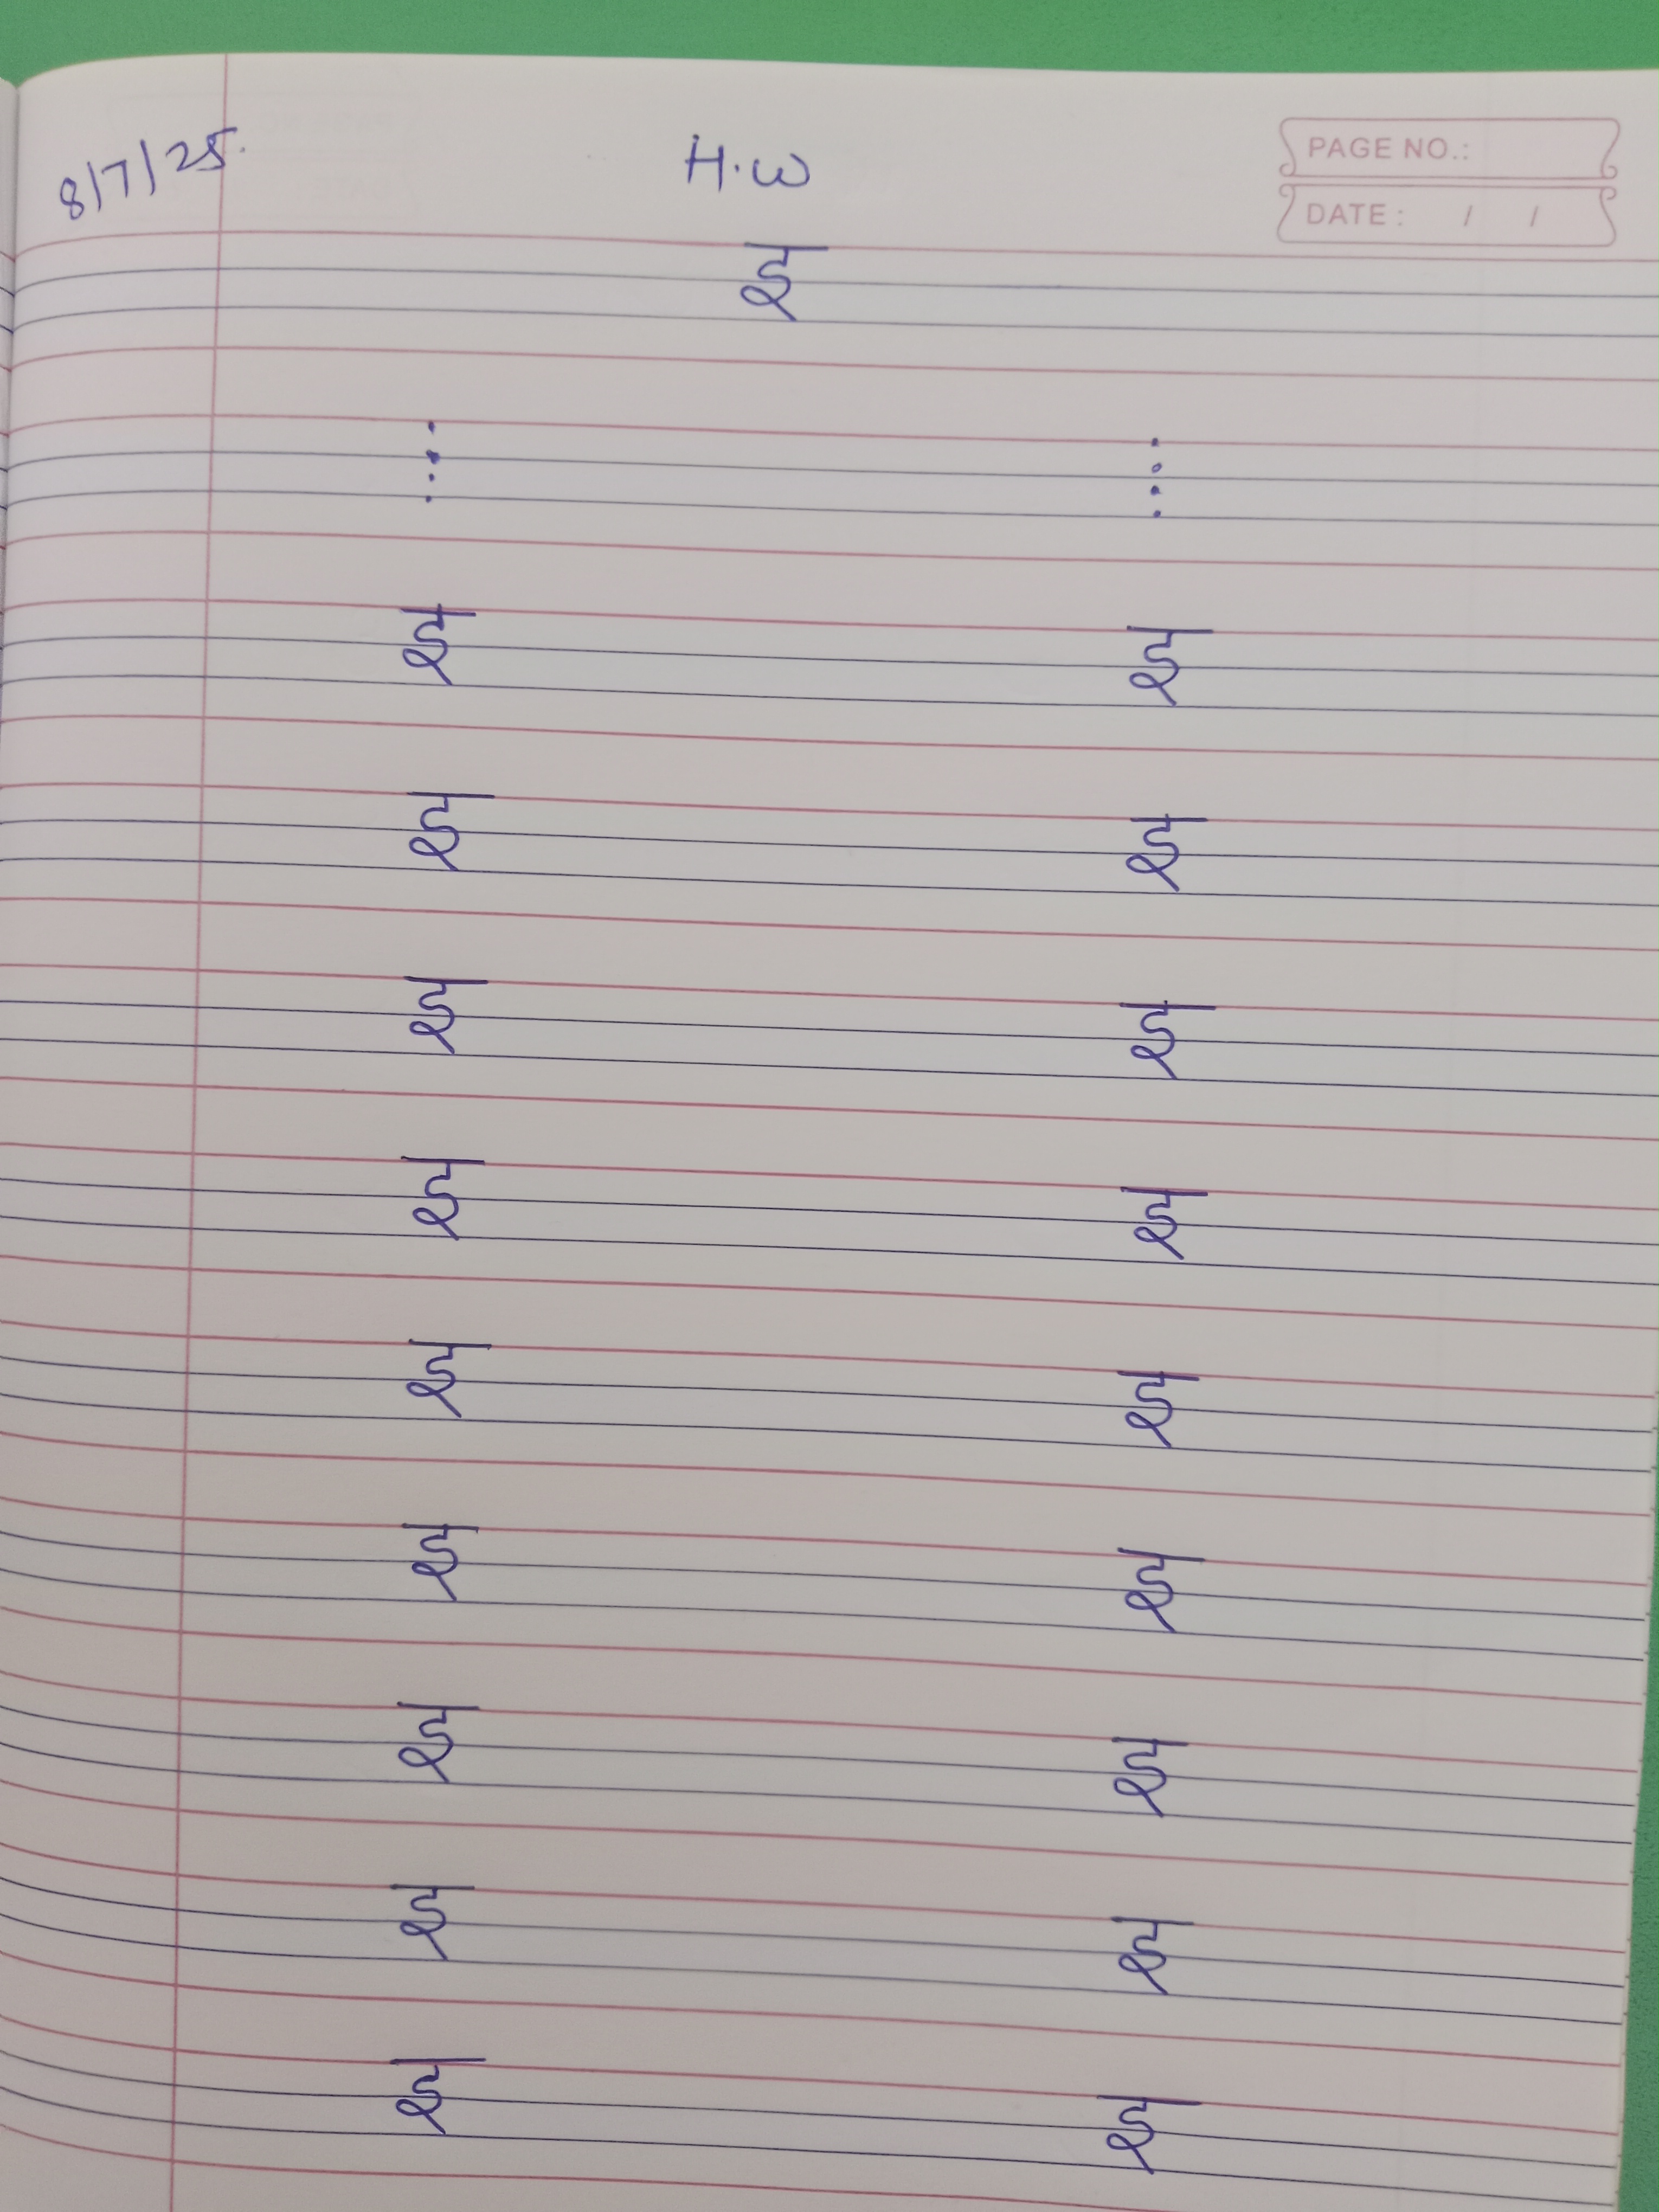 8/7/25. H.W PAGE NO.:
DATE : / /
इ
इ इ
इ इ
इ इ
इ इ
इ इ
इ इ
इ इ
इ इ
इ इ